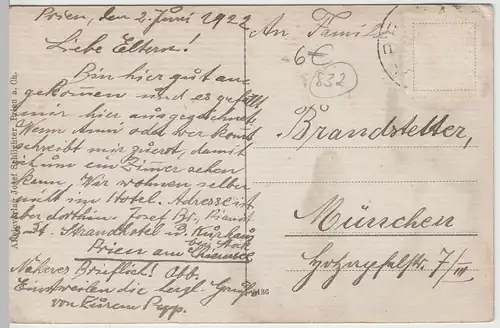 Prien, den 2. Juni 1922
Liebe Eltern!
Bin hier gut an-
gekommen und es gefällt
mir hier ausgezeichnet.
Wenn Anni oder wer kommt
schreibt mir zuerst, damit
ich um ein Zimmer sehen
kann. Wir wohnen selber
nicht im Hotel. Adresse ist
aber dorthin: Josef Br.
Strandhotel u. Kurhaus
Prien am Chiemsee
Näheres Brieflich!
Einstweilen die herzl. Grüße
von Eurem Pepp.
An Familie
6€
832
Brandstetter,
München
7/III